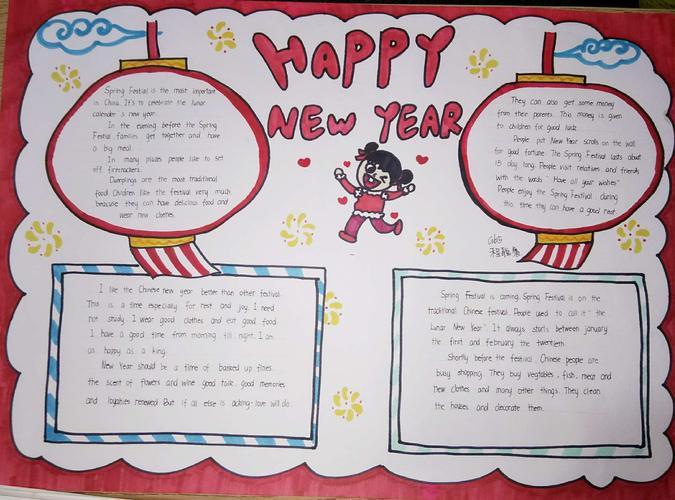 HAPPY
NEW YEAR
Spring Festival is the most important
in China. It's to celebrate the lunar
calender's new year.
In the evening before the Spring
Festival families get together and have
a big meal.
In many places people like to set
off firecrackers.
Dumplings are the most traditional
food Children like the festival very much.
because they can have delicious food and
wear new clothes.
They can also get some money
from their parents. This money is given
to children for good luck.
People put New Year scrolls on the wall
for good fortune. The Spring Festival lasts about
15 day long. People visit relatives and friends
with the words "Have all your wishes"
People enjoy the Spring Festival. during
this time they can have a good rest.
I like the Chinese new year better than other festival.
This is a time especially for rest and joy. I need
not study. I wear good clothes and eat good food.
I have a good time from morning till night. I am
as happy as a king.
New Year should be a time of banked up fires.
the scent of flowers and wine good talk. good memories
and loyalties renewed But if all else is lacking-love will do.
Spring Festival is coming. Spring Festival is on the
traditional Chinese festival. People used to call it "the
lunar New Year". It always starts between january
the first and february the twentieth.
Shortly before the festival, Chinese people are
busy shopping. They buy vegetables, fish, meat and
new clothes and many other things. They clean
the houses and decorate them.